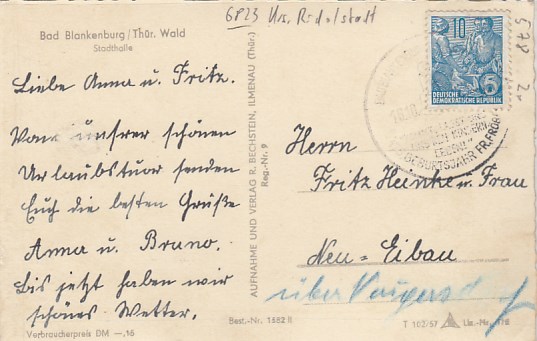 6823 Krs. Rudolstadt
578
Bad Blankenburg/Thür. Wald
Stadthalle
Liebe Anna u. Fritz.
Von unsrer schönen
Urlaubstour senden
Euch die besten Grüße
Anna u. Bruno.
bis jetzt haben wir
schönes Wetter.
Verbraucherpreis DM —,16
AUFNAHME UND VERLAG R. BECHSTEIN, ILMENAU (Thür.)
Reg.-Nr. 9
Best.-Nr. 1682 II
10
DEUTSCHE
DEMOKRATISCHE REPUBLIK
GEBURTSJAHR FR. FRÖB
Herrn
Fritz Heinke u. Frau
Neu-Eibau
über
T 102/57
Liz.-Nr.